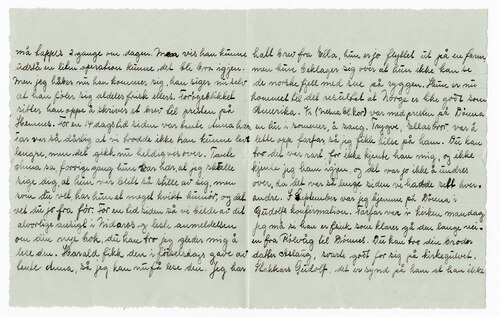 må tappels 2 gange om dagen. Men vis han kunne
en liten operation kunne det bli bra igjen.
men jeg håber nu han kommer sig, han siger nu selv
at han føler sig aldeles frisk ellers. I øieblikket
sitter han oppe å skriver et brev til presten på
Hernes. For en 14 dagstid siden var tante Anna hun
var så dårlig at vi trodde ikke hun kunne leve
lengre, men det gikk nu heldigvis over. Tante
Anna sa forrige gang hun var her, at jeg skulle
sige dig, at hun var best så stille av sig, men
som du vel har hun et meget kvikt humør, og det
vet du jo fra før. For en tid siden så vi både av det
alvorlige avisen i Nidaros og leste anmeldelsen
om din nye bok, du kan tro jeg gleder mig å
lese den. Harald fikk den i fødselsdags gave av
tante Anna, så jeg kan nu få lese den. Jeg har
hatt brev fra Ella, hun er jo flyttet ut på en farm,
men hun beklager sig over at hun ikke kan se
de norske fjell med sne på ryggen. Hun er nu
kommet til det resultat at Norge er like godt som
Amerika. Vi var med presten på Dønna
en tur i sommer, å sang. Trygve, Pellas bror var å
lette opp farfar så jeg fikk hilse på ham. Du kan
tro det var rart, for ikke kjente han mig, og ikke
kjente jeg ham igjen, og det var jo ikke å undres
over, da det var så lenge siden vi hadde sett hver-
andre. I September var jeg hjemme på Dønna i
Gudolfs konfirmation. Farfar var i kirken mandag
jeg må si han er frisk som klare gå den lange vei-
en fra Rølvåg til Dønnes. Du kan tro din bror-
datter Aslaug, svarte godt for sig på kirkegulvet.
Stakkars Gudolf, det er synd på ham at han ikke